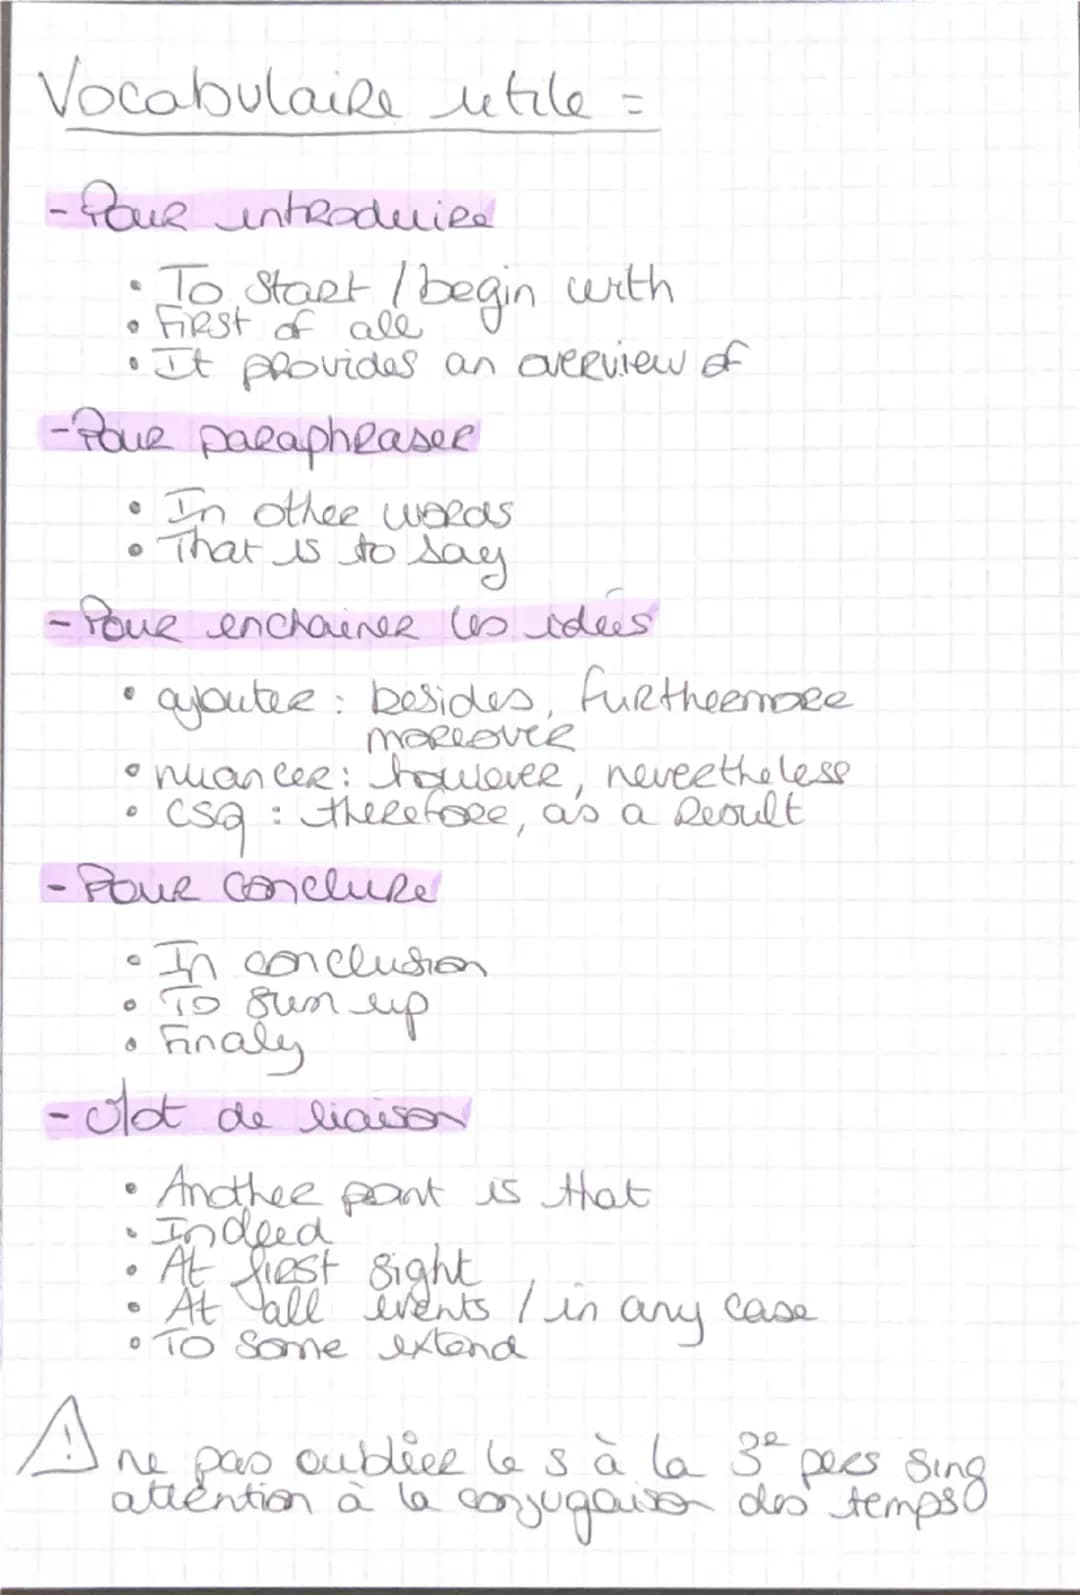 Vocabulaire utile =
- Pour introduire
• To start / begin with
• First of all
• It provides an overview of
- Pour paraphraser
• In other words
• That is to say
- Pour enchainer les idées
• ajouter : besides, furthermore
moreover
• nuancer : however, nevertheless
• csq : therefore, as a result
- Pour conclure
• In conclusion
• To sum up
• Finaly
- Mot de liaison
• Another point is that
• Indeed
• At first sight
• At all events / in any case
• To some extend
⚠ ne pas oublier le s à la 3e pers sing
attention à la conjugaison des temps